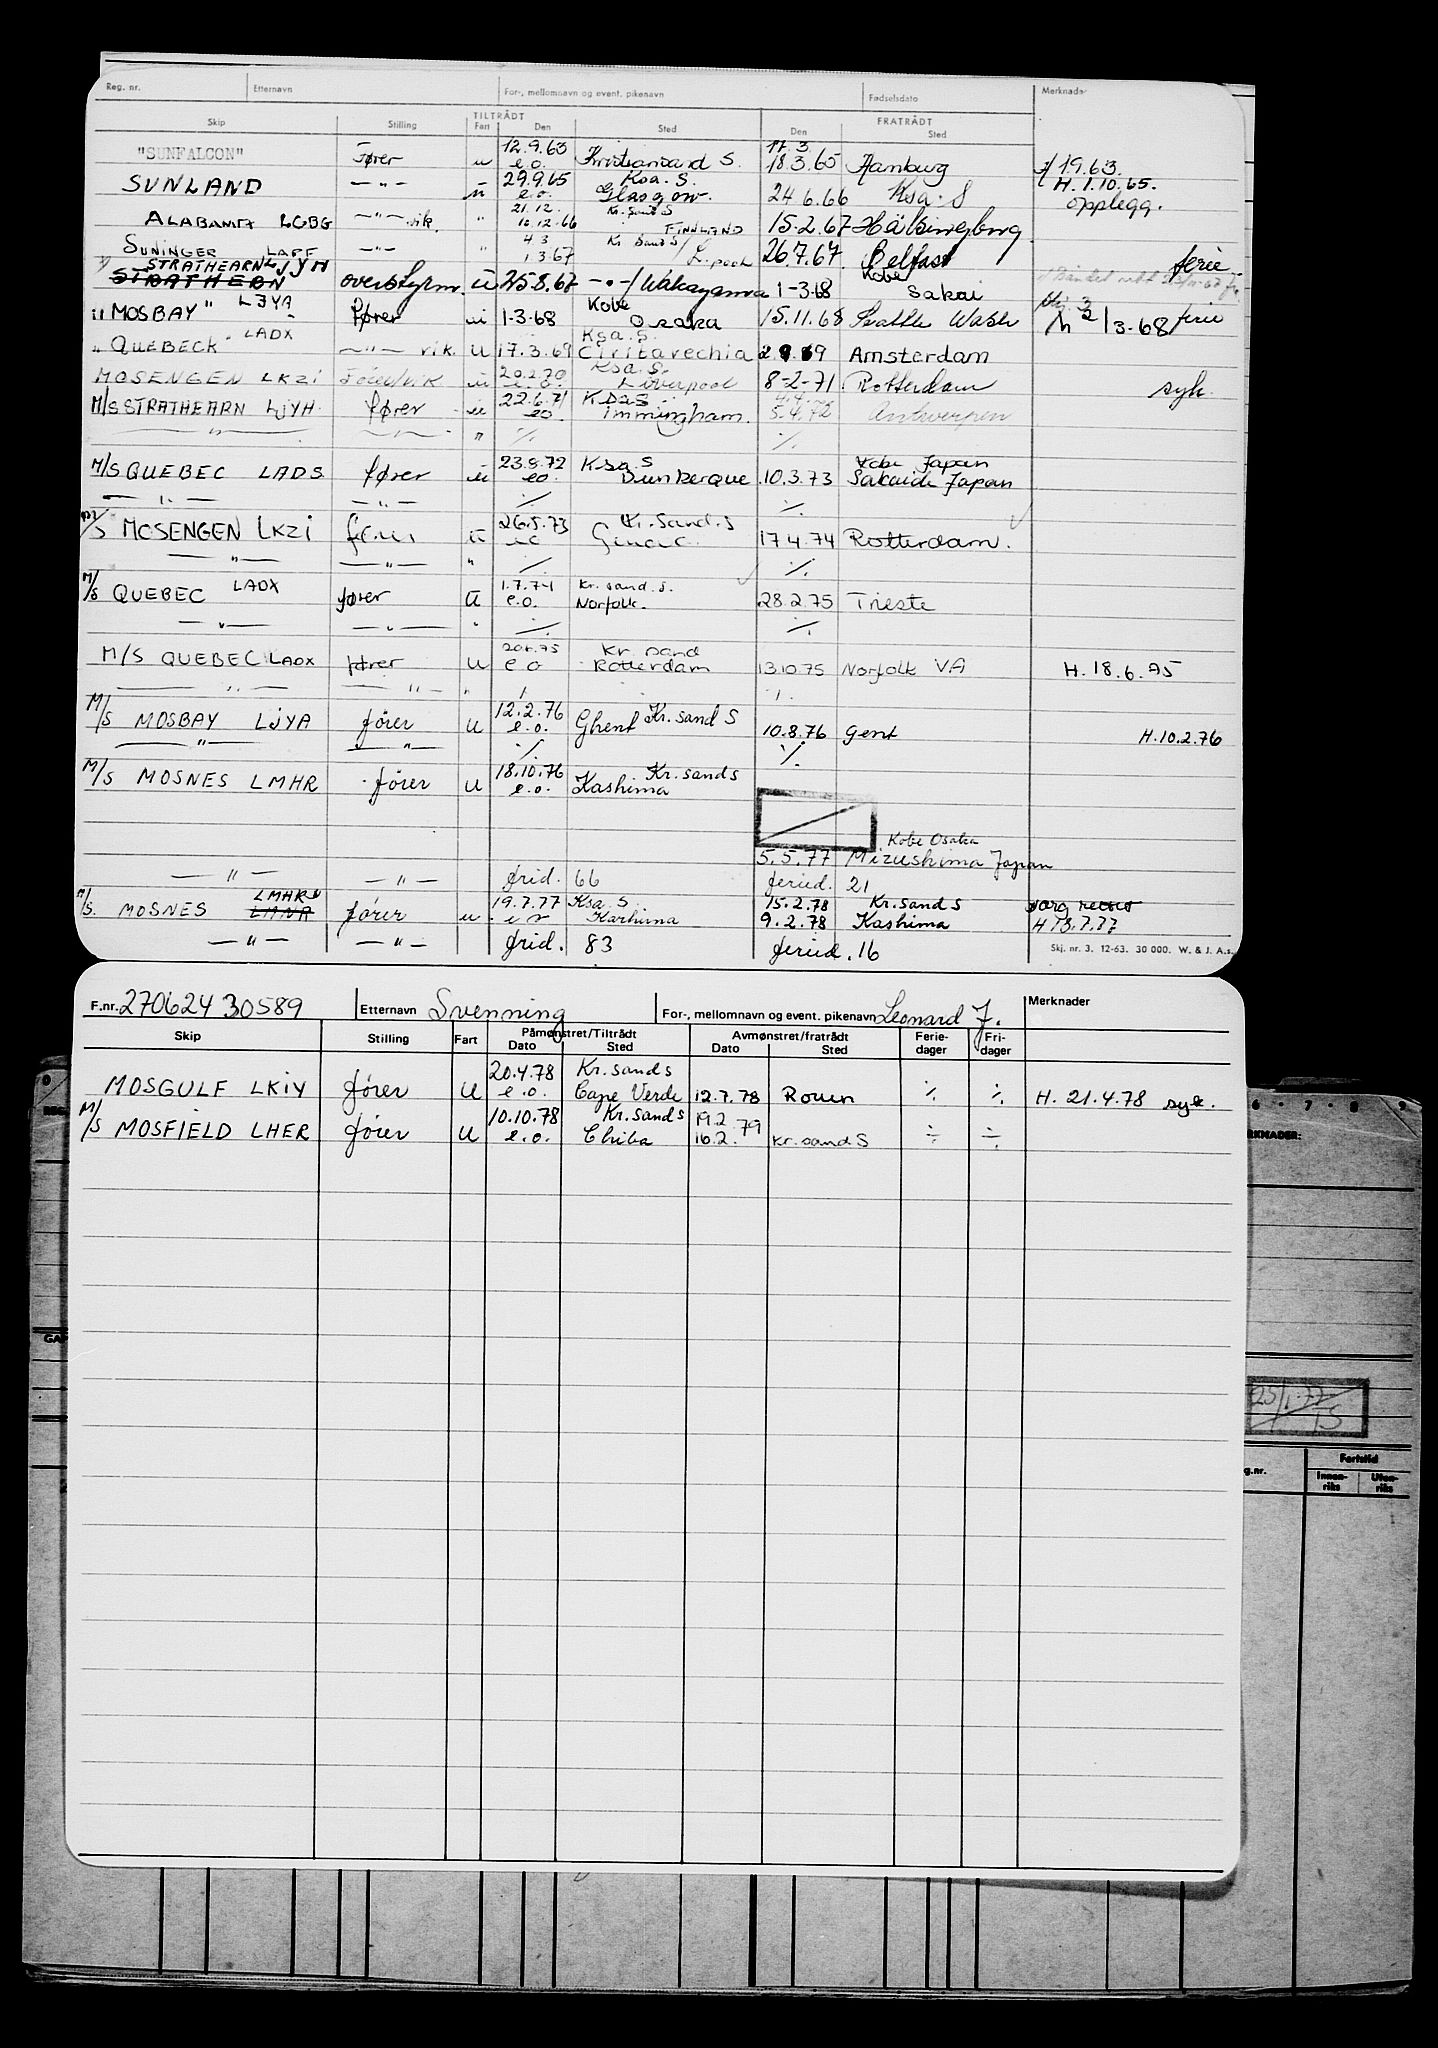 Reg. nr. Etternavn For-, mellomnavn og event. pikenavn Fødselsdato Merknader
TILTRÅDT FRATRÅDT
Skip Stilling Fart Den Sted Den Sted
12.9.63 17.3
"SUNFALCON" Fører u e.o. Kristiansand S. 18.3.65 Hamburg 19.63.
29.9.65 Ksa. S. H. 1.10.65.
SUNLAND — " — u e.o. Glasgow. 24.6.66 Ksa. S opplegg.
21.12. Kr. Sand S
ALABAMA LCBG — " — vik. " 16.12.66 FINNLAND 15.2.67 Hälsingborg
4.3 Kr Sand S
SUNINGER LAFF — " — " 1.3.67 L.pool 26.7.67 Belfast ferie
STRATHEARN LJYH Kobe
STRATHERN overstyrm. u 25.8.67 — " — / Wakayama 1-3-68 Sakai
Kobe
" MOSBAY " LJYA fører u 1-3-68 Osaka 15.11.68 Seattle Wash 3-68 ferie
Ksa. S.
" QUEBECK LADX — " — vik. u 17.3.69 Civitavechia 69 Amsterdam
20.2.70 Ksa. S.
MOSENGEN LKZI Fører/vik u e.o. Liverpool 8-2-71 Rotterdam syk.
22.6.71 4.4.
M/S STRATHEARN LJYH fører u eo. immingham. 5.4.72 Antwerpen
— " — — " — " ./. ./.
23.8.72 Ksa. S Kobe Japan
M/S QUEBEC LADS fører u eo. Dunkerque 10.3.73 Sakaide Japan
— " — — " — ./. ./.
26.5.73 Kr. Sand. S
M/S MOSENGEN LKZI u 17.4.74 Rotterdam.
— " — — " — " ./. ./.
LADX 1.7.74 Kr. sand. S.
M/S QUEBEC fører u e.o. Norfolk. 28.2.75 Trieste
— " — — " — " ./. ./.
Kr. sand
M/S QUEBEC LADX fører u e o Rotterdam 13.10.75 Norfolk VA H. 18.6.75
— " — — " — "
12.2.76 Kr. sand S
M/S MOSBAY LJYA fører u e.o. Ghent 10.8.76 Gent H.10.2.76
— " — — " — ./. ./.
18.10.76 Kr. sand S
M/S MOSNES LMHR fører u e.o. Kashima
Kobe Osaka
5.5.77 Mizushima Japan
— " — — " — frid. 66 feried. 21
LMHR 19.7.77 Ksa. S 15.2.78 Kr. sand S
M/S. MOSNES LMNR fører u Kashima 9.2.78 Kashima
— " — — " — frid. 83 feried. 16
Skj. nr. 3. 12-63. 30 000. W. & J. A.s.
F.nr. 270624 30589 Etternavn Svenning For-, mellomnavn og event. pikenavn Leonard J. Merknader
Skip Stilling Fart Påmønstret/Tiltrådt Avmønstret/fratrådt Ferie- Fri-
Dato Sted Dato Sted dager dager
20.4.78 Kr. sand S
MOSGULF LKIY fører U e.o. Cape Verde 12.7.78 Rouen ./. ./. H. 21.4.78 syk.
10.10.78 Kr. sand S 19.2
M/S MOSFIELD LHER fører U e.o. Chiba 16.2.79 Kr. sand S ./. ./.
6 7 8 9
RKNADER:
25/1-77
TS
g.nr. Fartstid
Innen-
riks Uten-
riks